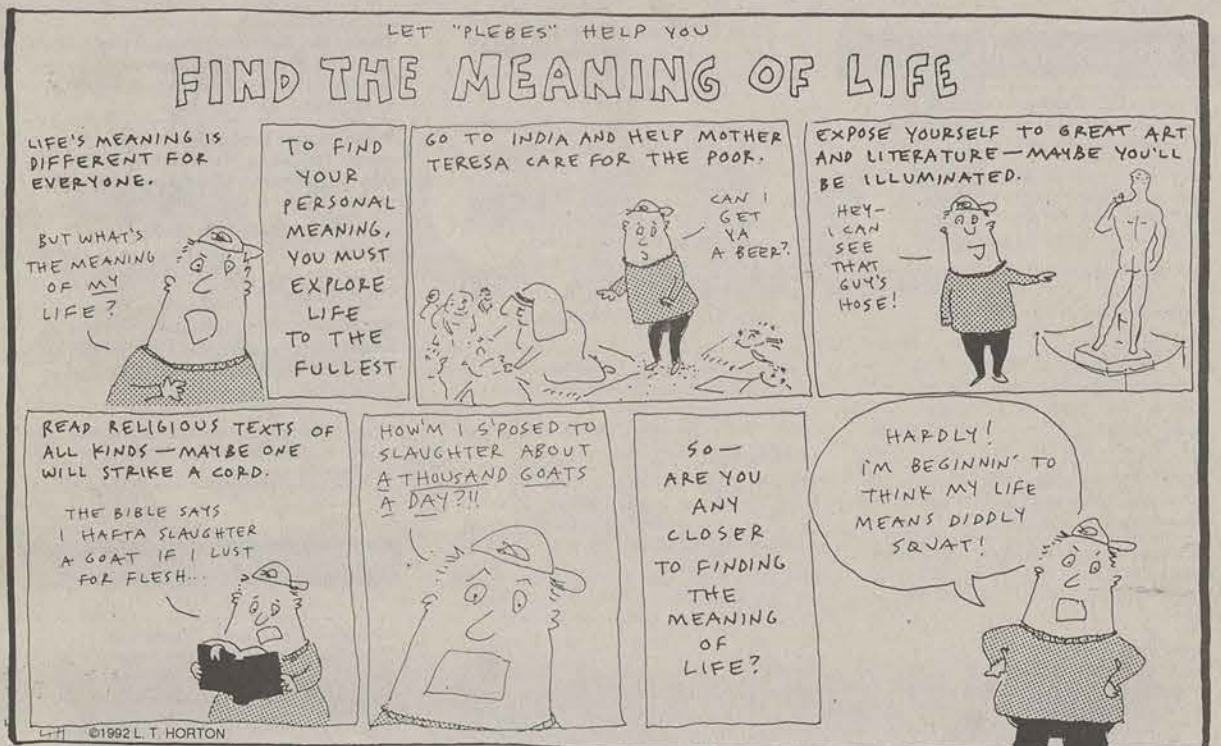 LET "PLEBES" HELP YOU
FIND THE MEANING OF LIFE
LIFE'S MEANING IS
DIFFERENT FOR
EVERYONE.
BUT WHAT'S
THE MEANING
OF MY
LIFE?
TO FIND
YOUR
PERSONAL
MEANING,
YOU MUST
EXPLORE
LIFE
TO THE
FULLEST
GO TO INDIA AND HELP MOTHER
TERESA CARE FOR THE POOR.
CAN I
GET
YA
A BEER?
EXPOSE YOURSELF TO GREAT ART
AND LITERATURE—MAYBE YOU'LL
BE ILLUMINATED.
HEY—
I CAN
SEE
THAT
GUY'S
HOSE!
READ RELIGIOUS TEXTS OF
ALL KINDS—MAYBE ONE
WILL STRIKE A CORD.
THE BIBLE SAYS
I HAFTA SLAUGHTER
A GOAT IF I LUST
FOR FLESH...
HOW'M I S'POSED TO
SLAUGHTER ABOUT
A THOUSAND GOATS
A DAY?!!
SO—
ARE YOU
ANY
CLOSER
TO FINDING
THE
MEANING
OF
LIFE?
HARDLY!
I'M BEGINNIN' TO
THINK MY LIFE
MEANS DIDDLY
SQUAT!
LTH ©1992 L. T. HORTON